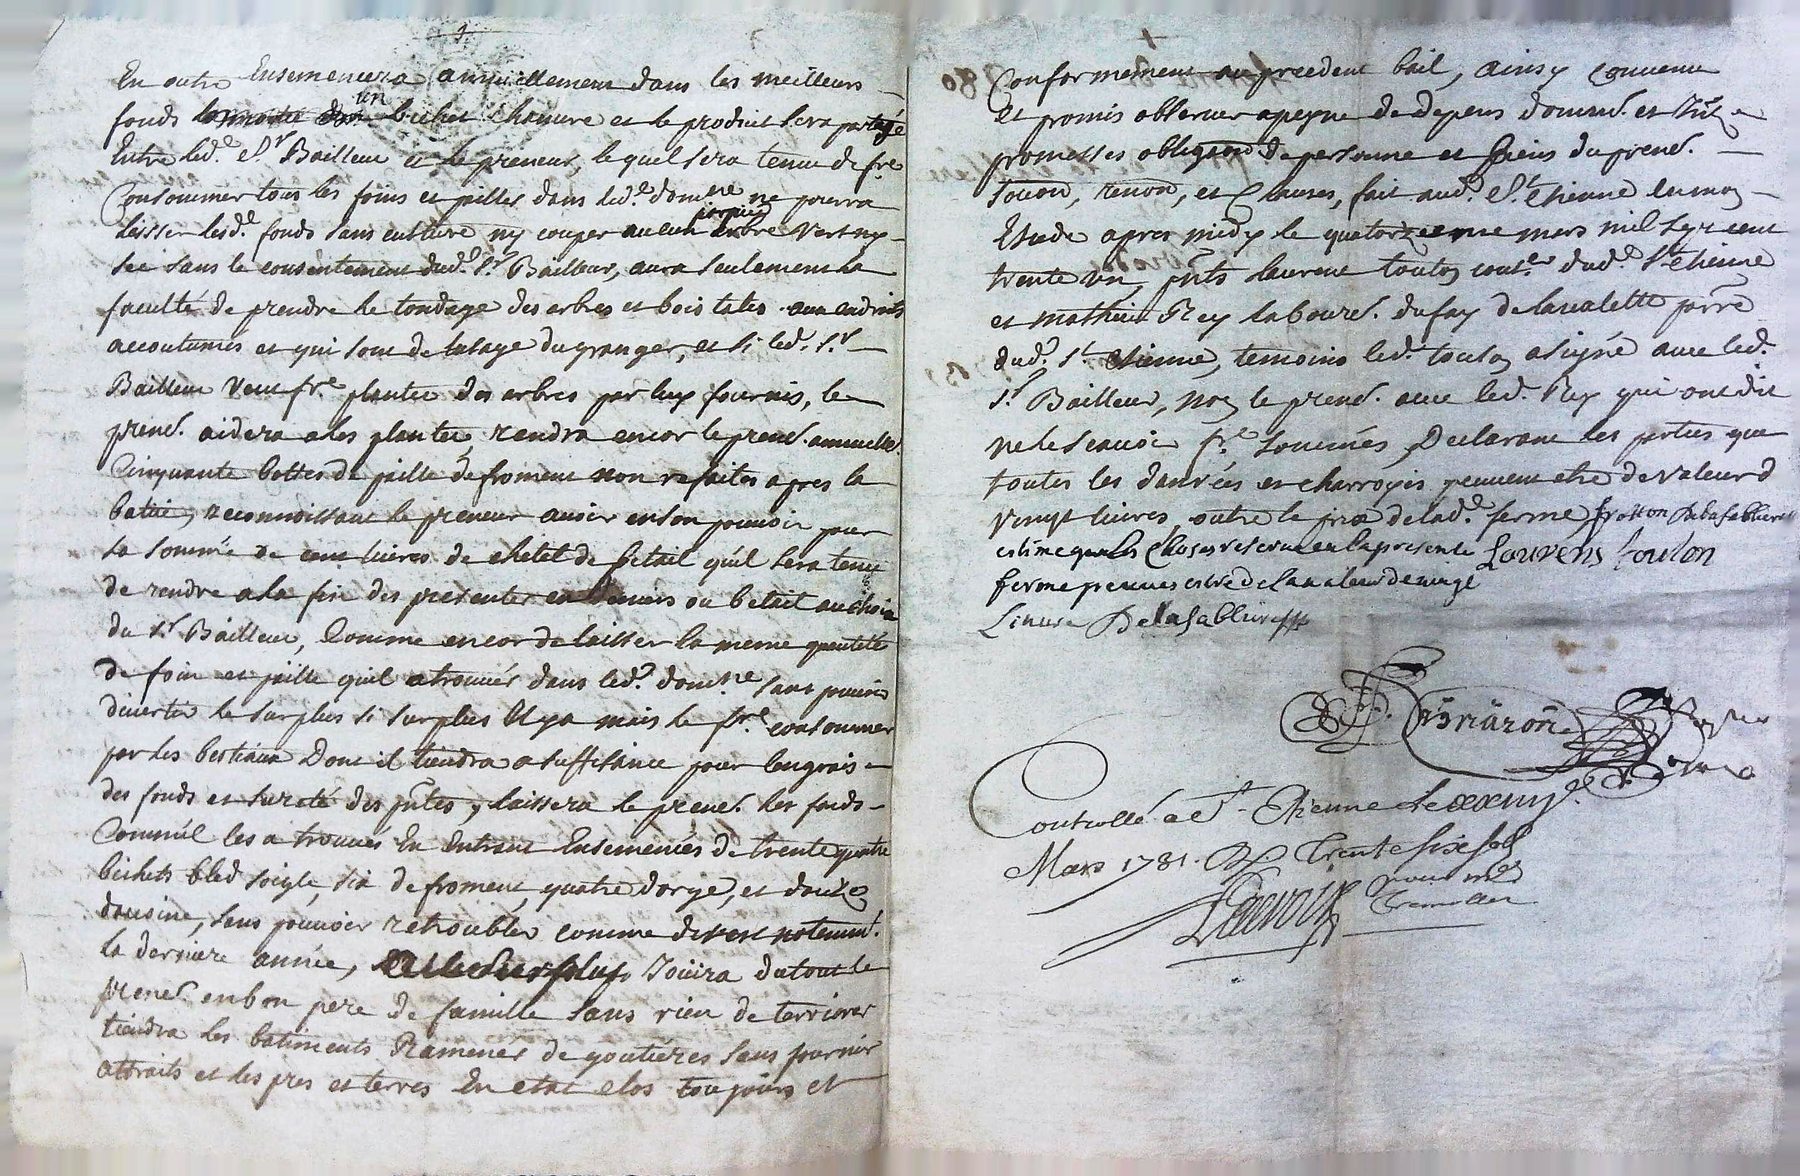 En outre Ensemencera annuellement dans les meilleurs
fonds un bichet chanvre et le produit sera partagé
Entre led.e S.r Bailleur et le preneur, lequel sera tenu de f.re
Consommer tous les foins et pailles dans led.e dom.ne ne pourra
laisser lesd.e fonds sans culture ny couper aucun arbre vert ny
sec sans le consentement dud.e S.r Bailleur, aura seulement la
faculté de prendre le tondage des arbres et bois tales aux endroits
accoutumés et qui sont de lusage du granger, et si led. S.r
Bailleur veut f.re planter des arbres par luy fournis, le
pren.r aidera ales planter rendra encor le pren.r annuellt.
Cinquante bottes de paille de froment non refaites apres la
battue, reconnoissant le preneur avoir en son pouvoir pour
la somme de cent livres de chetel de betail quil sera tenu
de rendre a la fin des presentes en deniers ou betail au choix
du S.r Bailleur, Comme encor de laisser la meme quantité
de foin et paille quil a trouvés dans led.e dom.ne sans pouvoir
divertir le surplus si surplus il y a mais le f.re consommer
par les bestiaux Dont il tiendra a suffisance pour lengrais
des fonds et sureté des p.ntes, laissera le pren.r les fonds
Comm'il les a trouvés En Entrant Ensemencés de trente quatre
bichets bled soigle, six de froment, quatre dorge, et douze
davoine, sans pouvoir retroubler comme dit est notemm.t
la derniere année, Jouira du tout le
pren.r en bon pere de famille sans rien de terriorer
tiendra les batiments Ramenés de goutieres sans fournir
attraits et les pres et terres En etat clos toujours et
Conformement au precedent bail, ainsy convenu
Et promis observer apeyne de depens domm.s et Int.s
promesses obligaon de personne et biens du pren.r
soum, renon, et Clauses, fait aud.e S.t Etienne en mon
Etude apres midy le quatorzieme mars mil sept cent
trente un, p.nts laurent toulon dud.e S.t Etienne
et mathieu Rey labour.r dufay de lavalette p.rre
dud.e S.t etienne, temoins led.e toulon a signé avec led.e
S.r Bailleur, non le pren.r avec led.e Rey qui ont dit
ne le scavoir f.re sommés, Declarant les parties que
toutes les danrées et charrois peuvent etre de valeur d
vingt livres, outre le prix de lad.e ferme frotton Delasabliere
estime que les choses reserve en la presente Lourens toulon
ferme peuves estre de la valeur de vingt
Livres Delasabliere
Controllé a S.t Etienne le
Mars 1731. R. Trente six sols